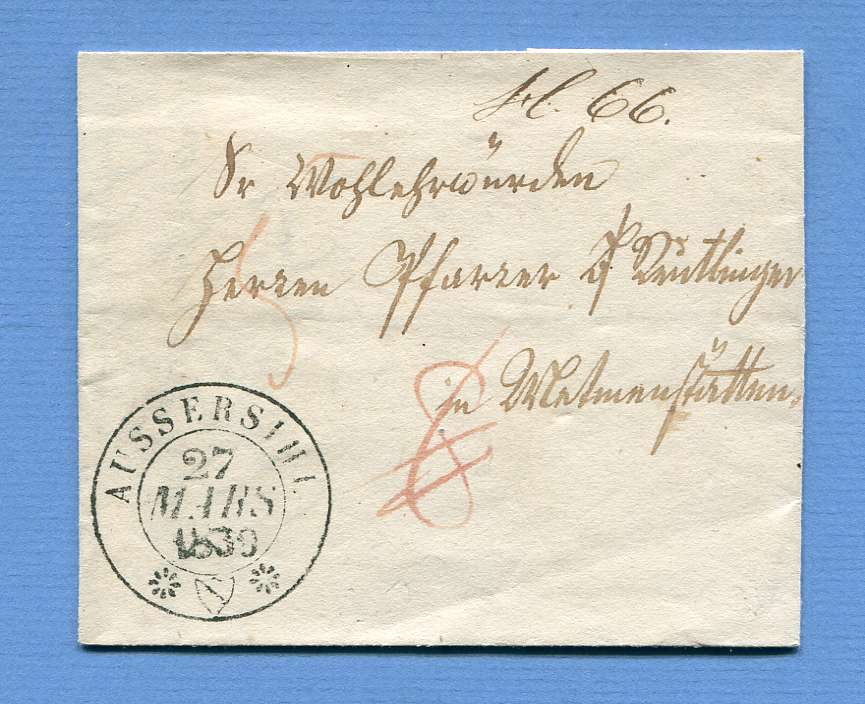 66.
Sr Wohlehrwürden
Herren Pfarrer Reutlinger
in Metmenstätten.
AUSSERSIHL
27
MARS
1839